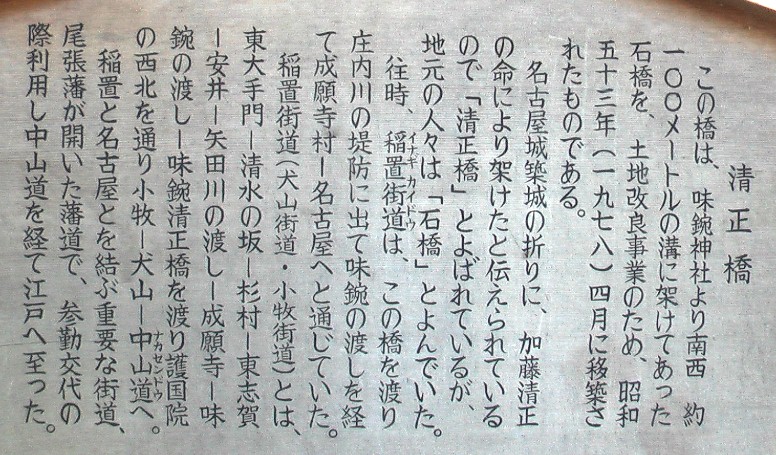 清正橋
この橋は、味鋺神社より南西　約
一〇〇メートルの溝に架けてあった
石橋を、土地改良事業のため、昭和
五十三年（一九七八）四月に移築さ
れたものである。
名古屋城築城の折りに、加藤清正
の命により架けたと伝えられている
ので「清正橋」とよばれているが、
地元の人々は「石橋」とよんでいた。
往時、稲置街道は、この橋を渡り
イナギカイドウ
庄内川の堤防に出て味鋺の渡しを経
て成願寺村ー名古屋へと通じていた。
稲置街道（犬山街道・小牧街道）とは、
東大手門ー清水の坂ー杉村ー東志賀
ー安井ー矢田川の渡しー成願寺ー味
鋺の渡しー味鋺清正橋を渡り護国院
の西北を通り小牧ー犬山ー中山道へ。
ナカセンドウ
稲置と名古屋とを結ぶ重要な街道、
尾張藩が開いた藩道で、参勤交代の
際利用し中山道を経て江戸へ至った。